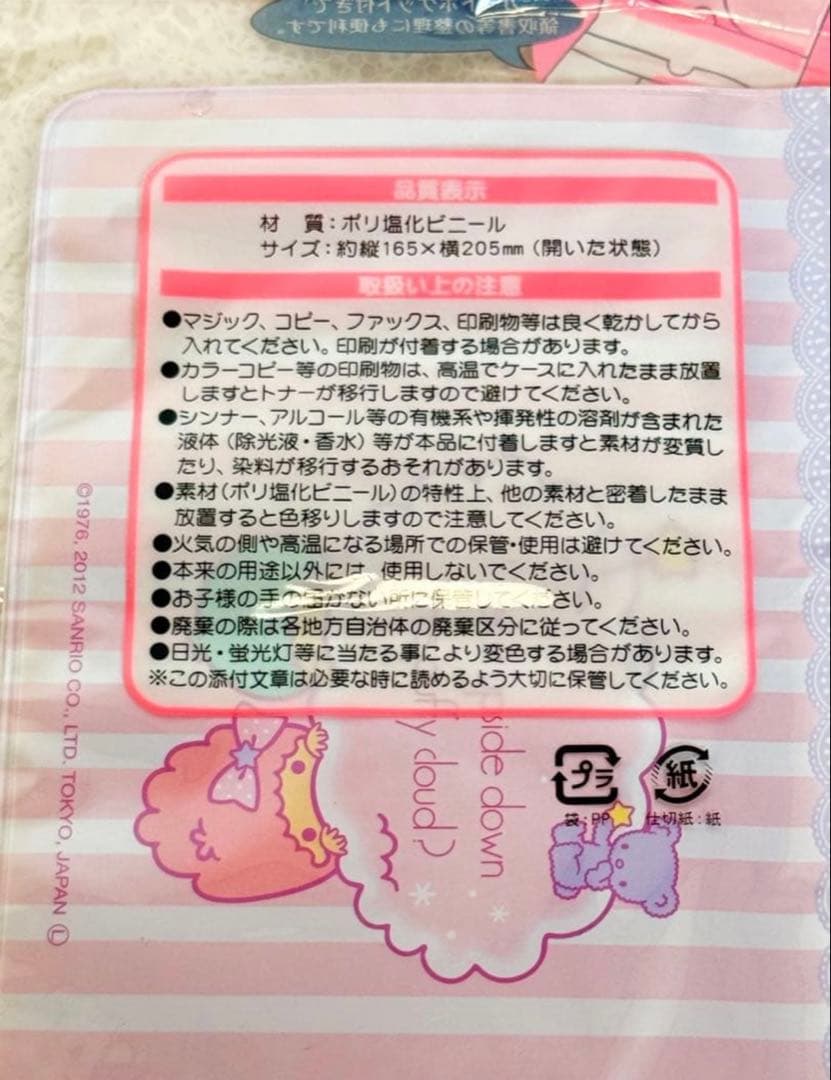 領収書等の整理にも便利です。
品質表示
材　質：ポリ塩化ビニール
サイズ：約縦165×横205mm（開いた状態）
取扱い上の注意
●マジック、コピー、ファックス、印刷物等は良く乾かしてから
入れてください。印刷が付着する場合があります。
●カラーコピー等の印刷物は、高温でケースに入れたまま放置
しますとトナーが移行しますので避けてください。
●シンナー、アルコール等の有機系や揮発性の溶剤が含まれた
液体（除光液・香水）等が本品に付着しますと素材が変質し
たり、染料が移行するおそれがあります。
●素材（ポリ塩化ビニール）の特性上、他の素材と密着したまま
放置すると色移りしますので注意してください。
●火気の側や高温になる場所での保管・使用は避けてください。
●本来の用途以外には、使用しないでください。
●お子様の手の届かない所に保管してください。
●廃棄の際は各地方自治体の廃棄区分に従ってください。
●日光・蛍光灯等に当たる事により変色する場合があります。
※この添付文章は必要な時に読めるよう大切に保管してください。
©1976, 2012 SANRIO CO., LTD. TOKYO, JAPAN Ⓛ
side down
fy cloud?
プラ
袋：PP
紙
仕切紙：紙